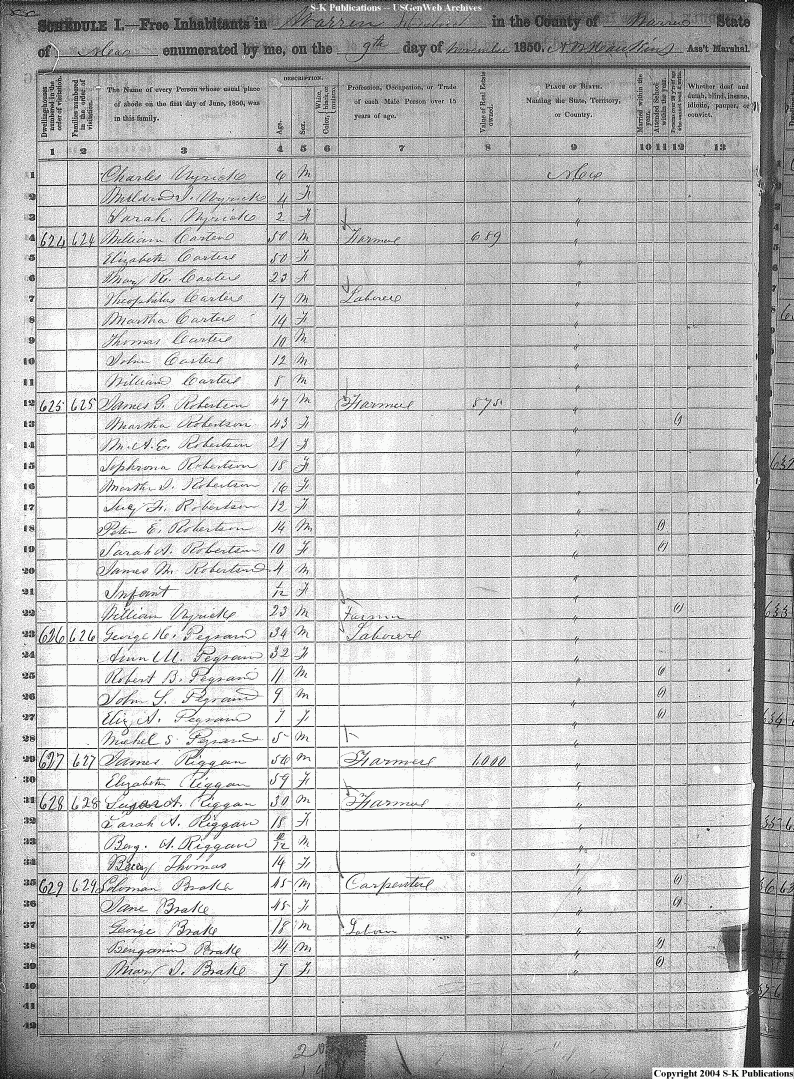 S-K Publications -- USGenWeb Archives
SCHEDULE I.—Free Inhabitants in Warren District in the County of Warren State
of enumerated by me, on the 9th day of November 1850. Ass't Marshal.
Dwelling-houses numbered in the order of visitation.
Families numbered in the order of visitation.
The Name of every Person whose usual place of abode on the first day of June, 1850, was in this family.
DESCRIPTION.
Age.
Sex.
White, black, or mulatto.
Color,
Profession, Occupation, or Trade of each Male Person over 15 years of age.
Value of Real Estate owned.
PLACE OF BIRTH. Naming the State, Territory, or Country.
Married within the year.
Attended School within the year.
Whether deaf and dumb, blind, insane, idiotic, pauper, or convict.
1 2 3 4 5 6 7 8 9 10 11 12 13
1 Charles Nyrick 6 M
2 Mildred J. Nyrick 4 F "
3 Sarah Nyrick 2 F "
4 624 624 William Carter 50 M Farmer 689 "
5 Elizabeth Carter 50 F "
6 Mary R. Carter 23 F "
7 Theophilus Carter 17 M Laborer "
8 Martha Carter 14 F "
9 Thomas Carter 10 M "
10 John Carter 12 M "
11 William Carter 8 M "
12 625 625 James G. Robertson 47 M Farmer 875 "
13 Martha Robertson 43 F " 1
14 M. A. E. Robertson 21 F "
15 Sophrona Robertson 18 F "
16 Martha J. Robertson 16 F "
17 Lucy F. Robertson 12 F "
18 Peter E. Robertson 14 M " 1
19 Sarah A. Robertson 10 F " 1
20 James M. Robertson 4 M "
21 Infant 1/12 F "
22 William Nyrick 23 M Farmer " 1
23 626 626 George W. Pegram 34 M Laborer "
24 Ann M. Pegram 32 F "
25 Robert B. Pegram 11 M " 1
26 John L. Pegram 9 M " 1
27 Eliz A. Pegram 7 F " 1
28 Michel S. Pegram 5 M "
29 627 627 James Riggan 56 M Farmer 1.000 "
30 Elizabeth Riggan 59 F "
31 628 628 Riggan 30 M Farmer "
32 Sarah A. Riggan 18 F "
33 Benj. A. Riggan /12 M "
34 Thomas 14 F "
35 629 629 Soloman Brake 45 M Carpenter " 1
36 Jane Brake 45 F " 1
37 George Brake 18 M Labour "
38 Bengamin Brake 14 M " 1
39 Mary J. Brake 7 F " 1
40
41
42
Copyright 2004 S-K Publications